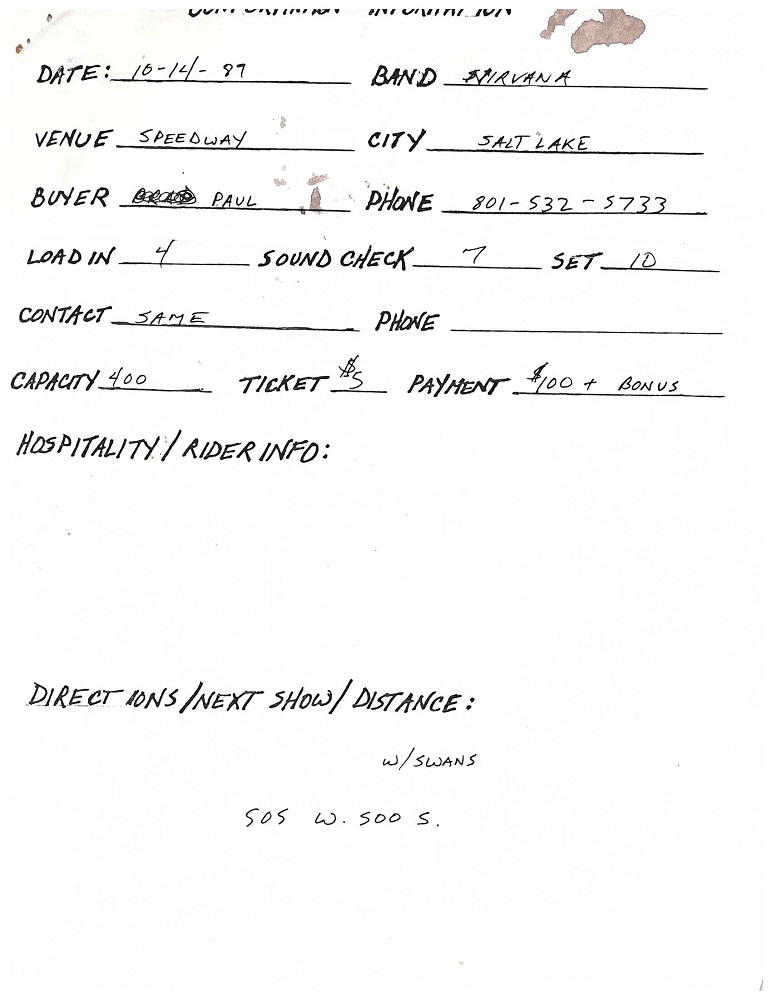 CONFORMATION INFORMATION
DATE: 10-14-89 BAND NIRVANA
VENUE SPEEDWAY CITY SALT LAKE
BUYER PAUL PHONE 801-532-5733
LOAD IN 4 SOUND CHECK 7 SET 10
CONTACT SAME PHONE
CAPACITY 400 TICKET $5 PAYMENT $100 + BONUS
HOSPITALITY/RIDER INFO:
DIRECTIONS/NEXT SHOW/DISTANCE:
W/SWANS
505 W. 500 S.